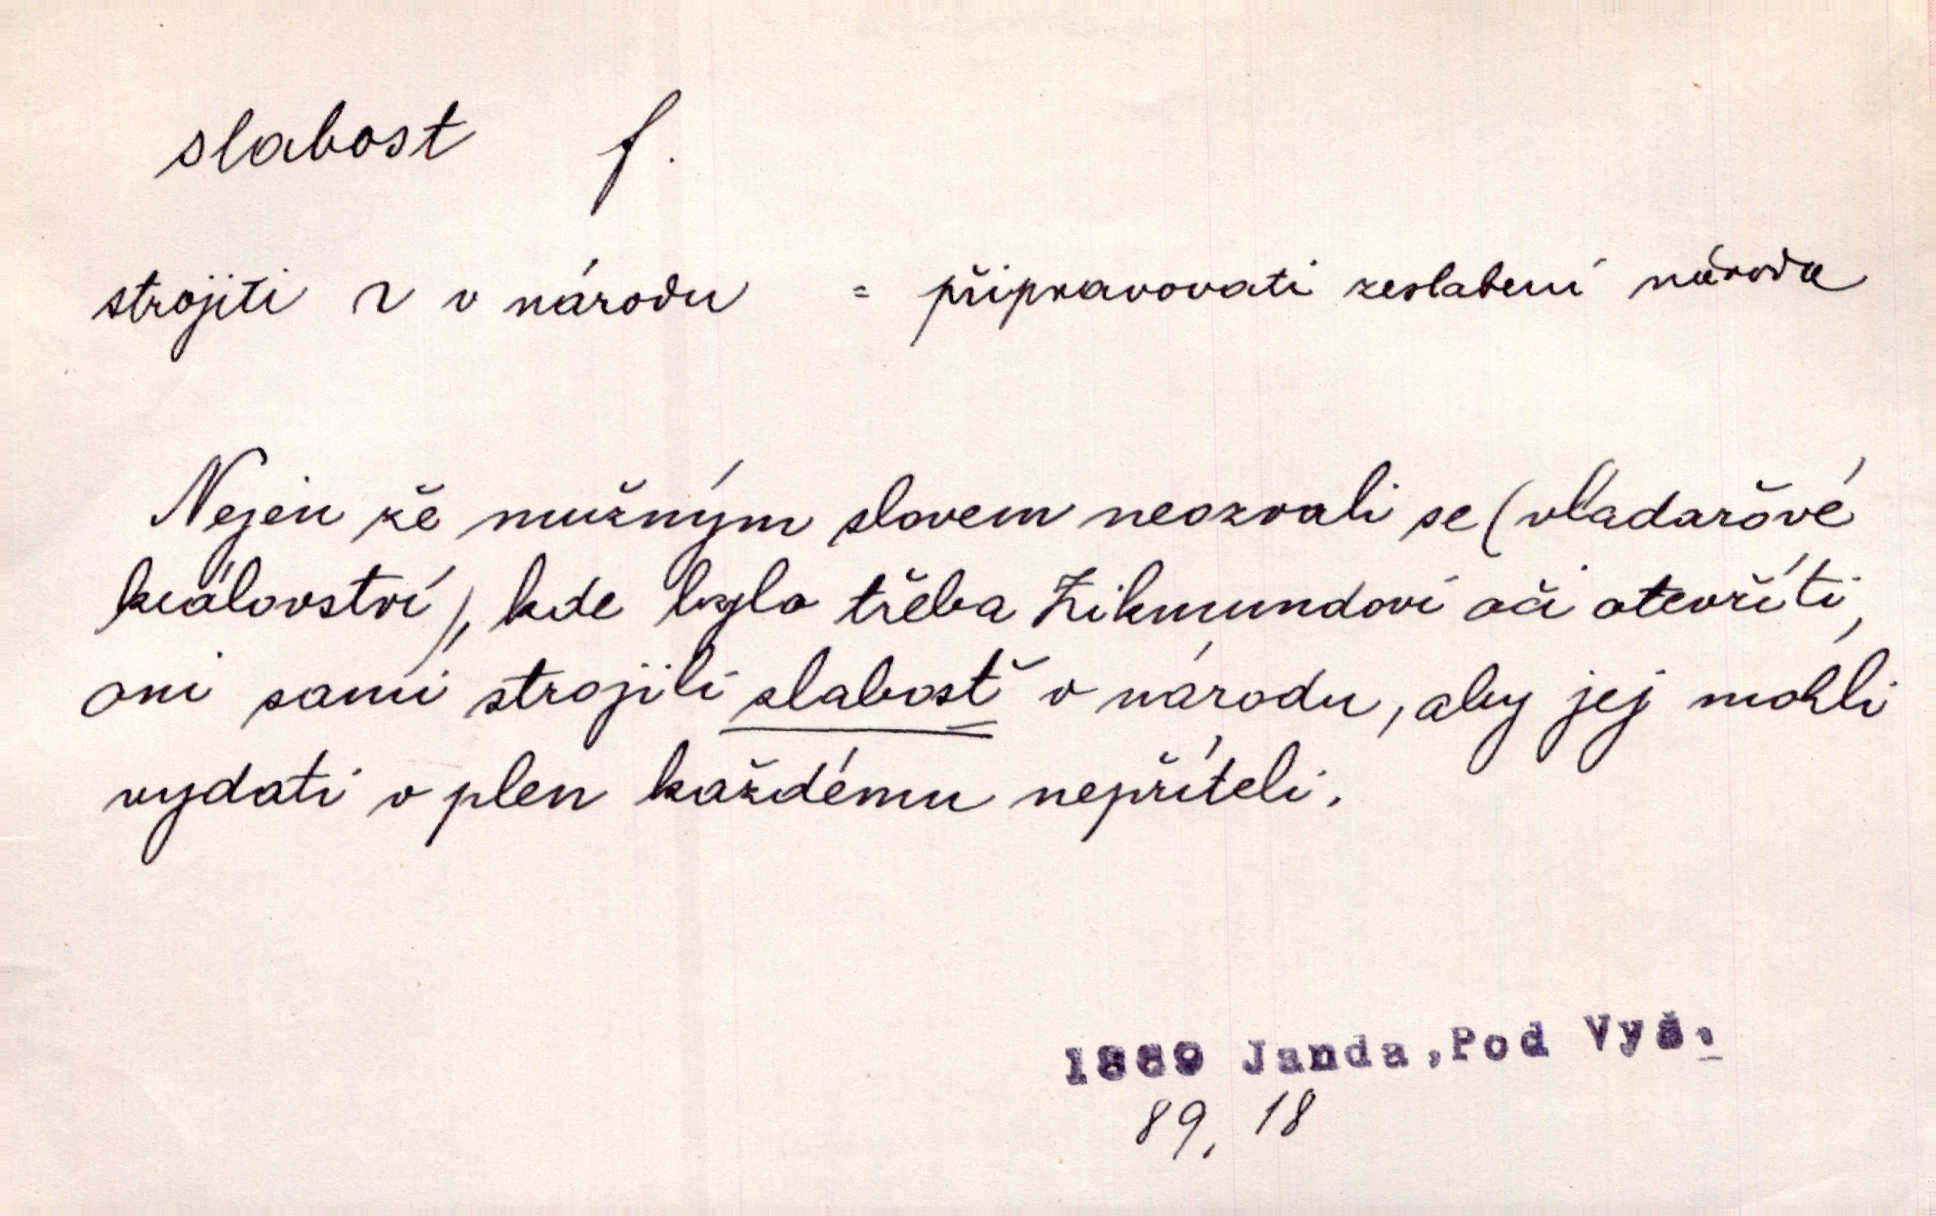 slabost f.
strojiti ~ v národu = připravovati zeslabení národa
Nejen že mužným slovem neozvali se (vladařové
království), kde bylo třeba Zikmundovi oči otevříti,
oni sami strojili slabosť v národu, aby jej mohli
vydati v plen každému nepříteli.
1869 Janda, Pod Vyš.
89, 18